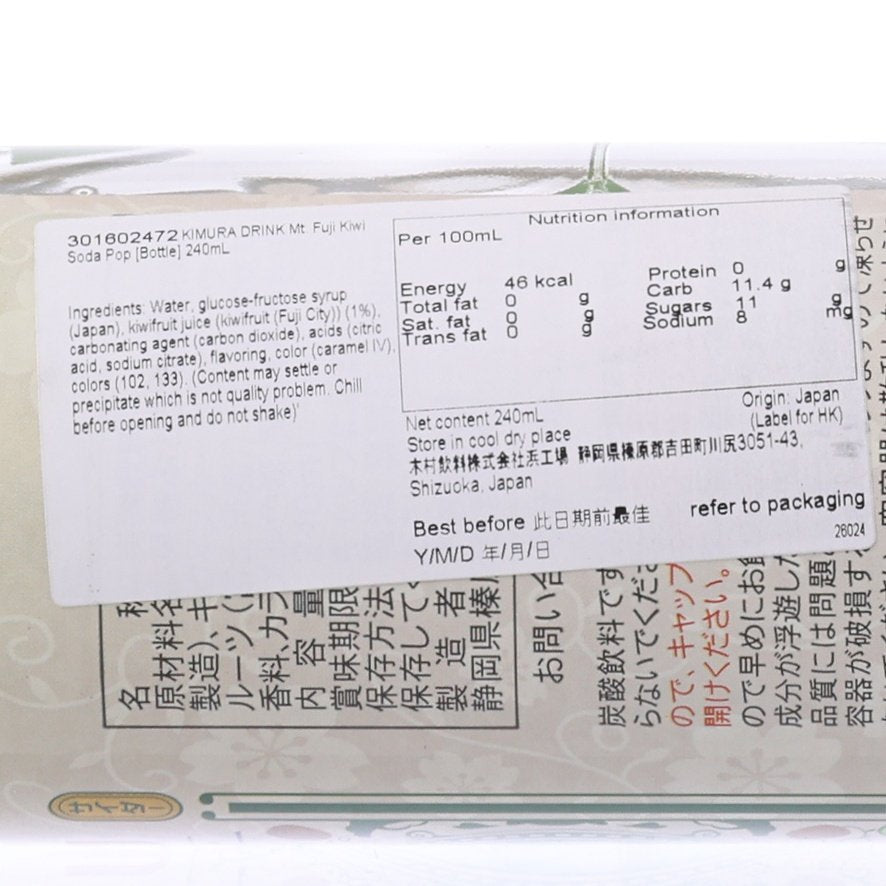 301602472 KIMURA DRINK Mt. Fuji Kiwi
Soda Pop [Bottle] 240mL
Ingredients: Water, glucose-fructose syrup
(Japan), kiwifruit juice (kiwifruit (Fuji City)) (1%),
carbonating agent (carbon dioxide), acids (citric
acid, sodium citrate), flavoring, color (caramel IV),
colors (102, 133). (Content may settle or
precipitate which is not quality problem. Chill
before opening and do not shake)'
Nutrition information
Per 100mL
Energy 46 kcal
Total fat 0 g
Sat. fat 0 g
Trans fat 0 g
Protein 0 g
Carb 11.4 g
Sugars 11 g
Sodium 8 mg
Net content 240mL
Origin: Japan
Store in cool dry place
(Label for HK)
木村飲料株式会社浜工場 静岡県榛原郡吉田町川尻3051-43,
Shizuoka, Japan
Best before 此日期前最佳 refer to packaging
Y/M/D 年/月/日
28024
名
原材料名
製造)、キ
ルーツ(
香料、カラ
内容量
賞味期限
保存方法
保存して
製造者
静岡県榛
お問い合
炭酸飲料です
らないでくださ
ので、キャップ
開けください。
ので早めにお
成分が浮遊した
品質には問題
容器が破損す
サイダー